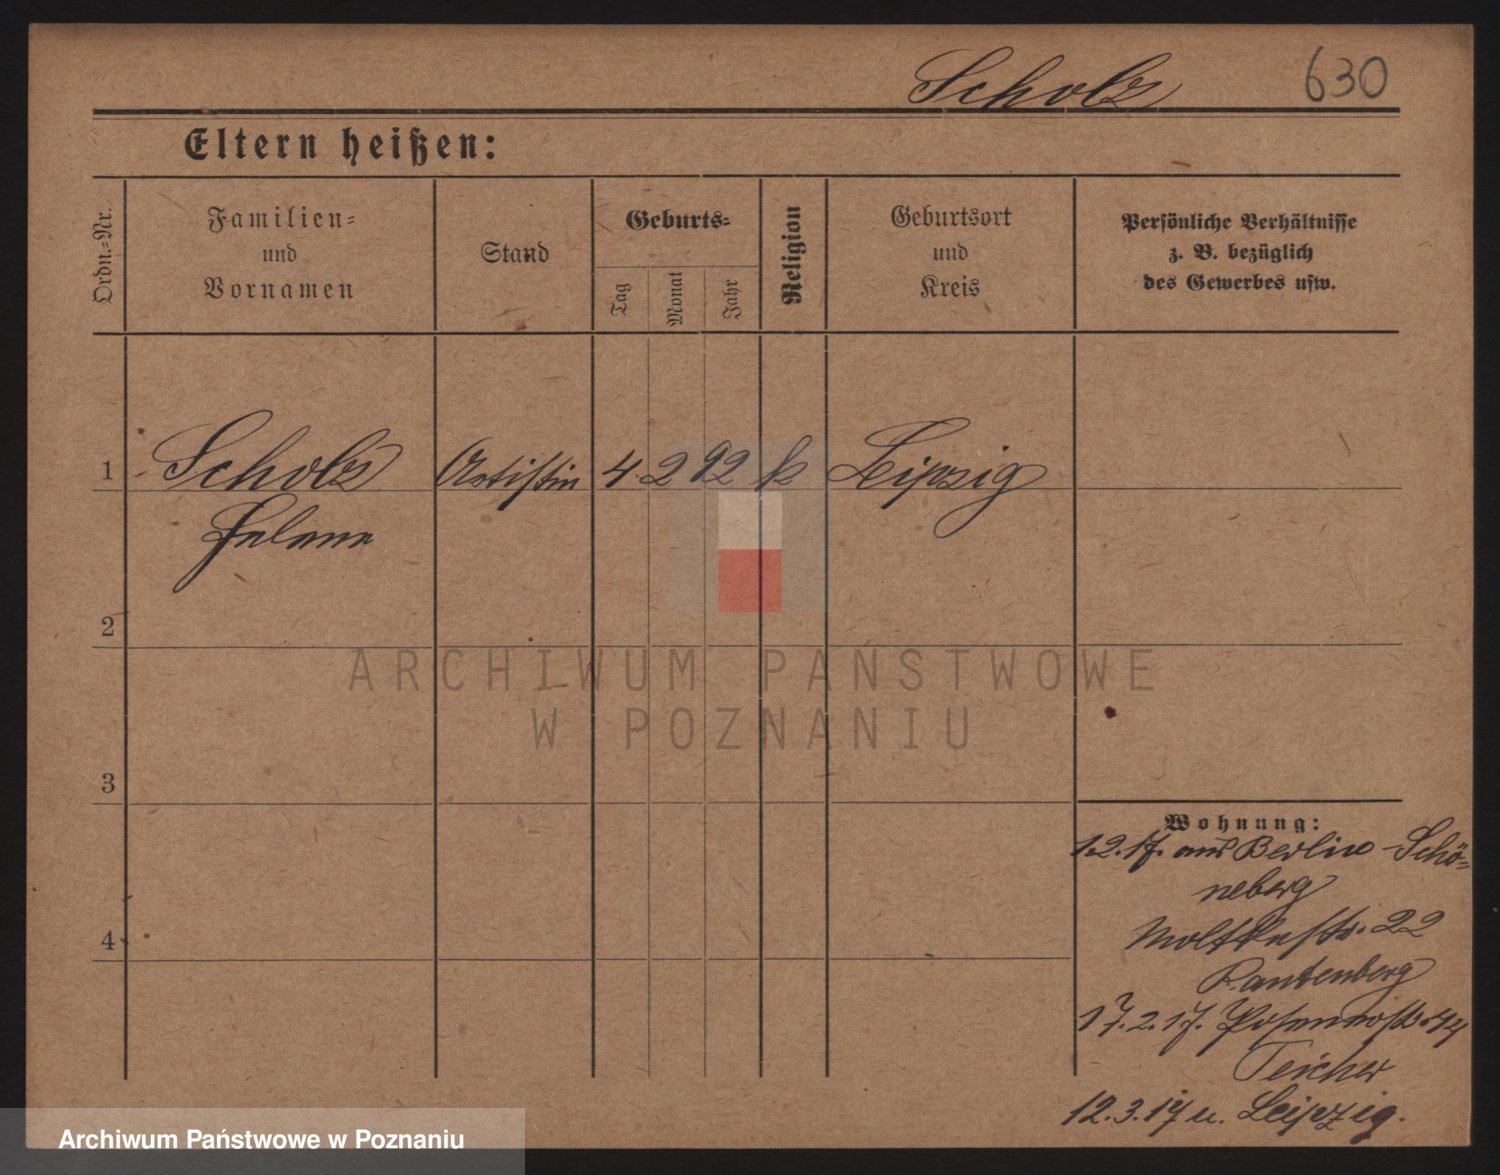 Scholz 630
Eltern heißen:
Ordn.-Nr.
Familien-
und
Vornamen
Stand
Geburts-
Tag
Monat
Jahr
Religion
Geburtsort
und
Kreis
Persönliche Verhältnisse
z. B. bezüglich
des Gewerbes usw.
1 Scholz Artistin 4. 2 92 k Leipzig
Helene
2
3
4
Wohnung:
1.2.17. aus Berlin-Schö-
neberg
Moltkestr. 22
Rautenberg
17.2.17. 44
Teicher
12.3.17 n. Leipzig.
ARCHIWUM PAŃSTWOWE
W POZNANIU
Archiwum Państwowe w Poznaniu